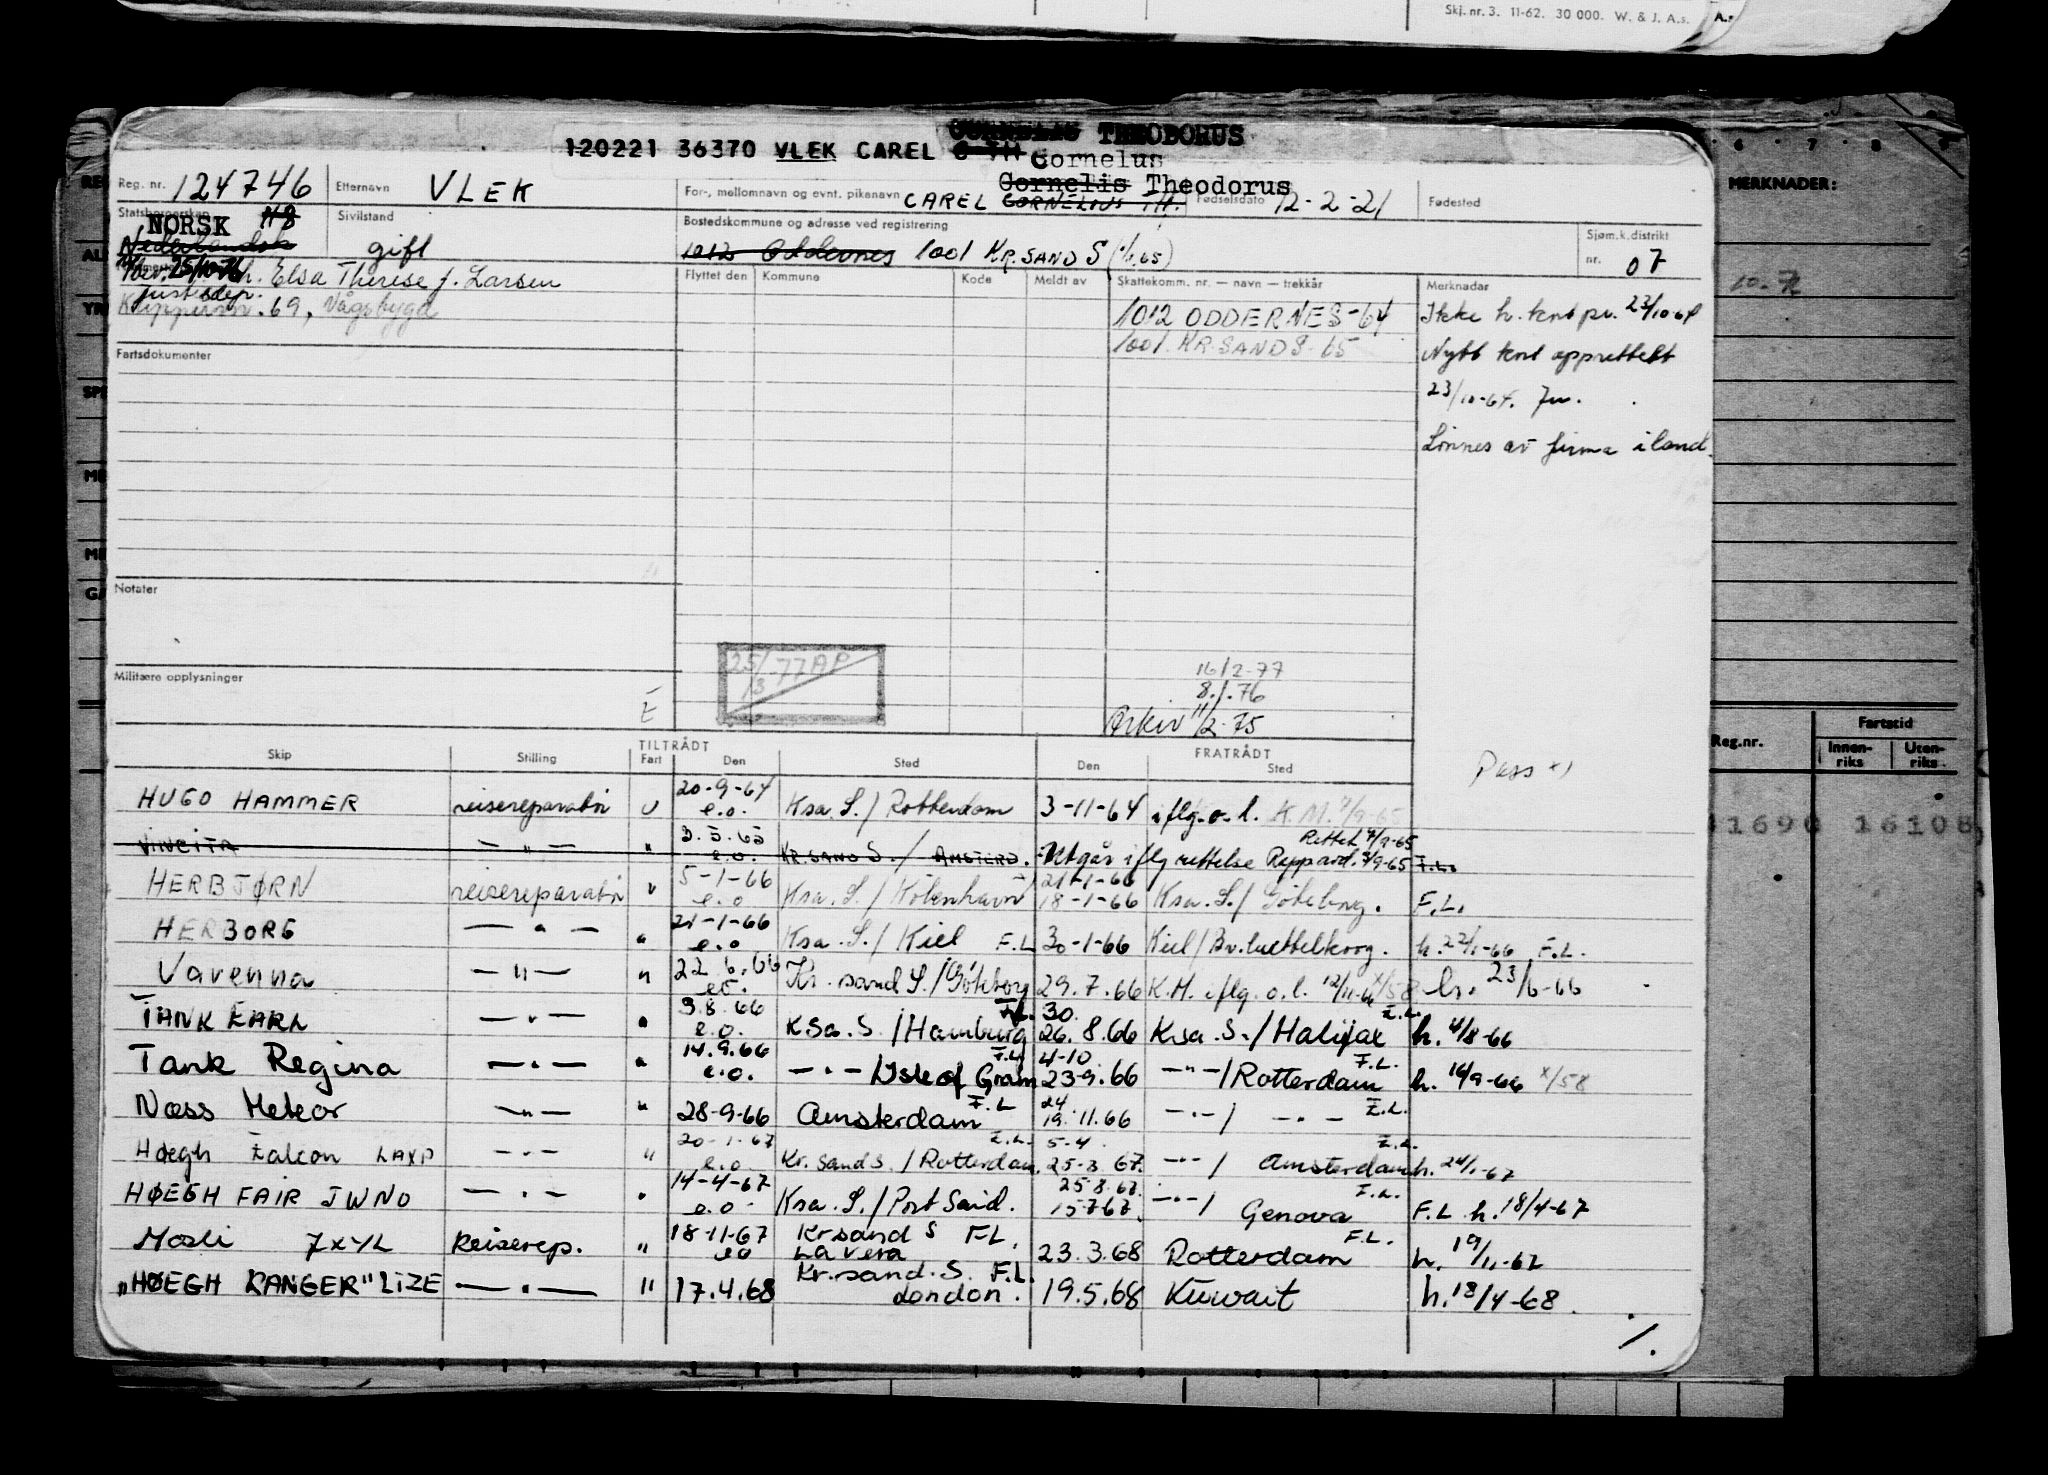 Skj. nr. 3. 11-62. 30 000. W. & J. A.s. A.s
120221 36370 VLEK CAREL C TH CORNELIS THEODORUS
Cornelus
Cornelis Theodorus
Reg. nr. 124746 Etternavn VLEK For-, mellomnavn og evnt. pikenavn CAREL CORNELIUS TH. Fødselsdato 12-2-21 Fødested
MERKNADER:
Statsborgerskap NORSK Sivilstand gift Bostedskommune og adresse ved registrering
Nederlandsk 1012 Oddernes 1001 KR.SAND S (1/1.65) Sjøm.k.distrikt nr. 07
25/10-76 Elsa Therese f. Larsen
Justisdep.
69, Vågsbygd
Flyttet den Kommune Kode Meldt av Skattekomm. nr. — navn — trekkår Merknader
1012 ODDERNES-64 Ikke h. kort pr. 23/10-64
1001 KR.SAND S-65 Nytt kort opprettett
23/10-64.
Lönnes av firma i land.
Fartsdokumenter
Notater
25/3 77 AP
Militære opplysninger
16/2-77
8/1.76
Arkiv 11/2-75
E
Skip Stilling TILTRÅDT Fart Den Sted FRATRÅDT Den Sted
Pass x)
Reg.nr. Fartstid Innenriks Utenriks
HUGO HAMMER reisereparatör U 20-9-64 e.o. Ksa. S./Rotterdam 3-11-64 iflg. o. l. K.M. 7/9-65
VINCITA — " — " 3.5.65 e.o. KR.SAND S./AMSTERD. Utgår iflg rettelse Rettet 7/9-65 F.L.
HERBJØRN reisereparatör " 5-1-66 e.o Ksa. S./Köbenhavn 21-1-66 18-1-66 Ksa. S./Göteborg. F.L.
HERBORG — " — " 21-1-66 e.o Ksa. S./Kiel F.L 30-1-66 Kiel/Brunsbüttelkoog. h. 22/1-66 F.L.
Varenna — " — " 22.6.66 eo. Kr. sand S./Göteborg 29.7.66 K.M. iflg. o. l. 12/11-66 x/58 h. 23/6-66
TANK EARL — " — " 3.8.66 e.o. Ksa. S./Hamburg F.L. 30. 26.8.66 Ksa. S./Halifax F.L. h. 4/8-66
Tank Regina — " — " 14.9.66 e.o. — " —/Isle of Grain F.L. 4-10 23-9.66 — " —/Rotterdam F.L. h. 16/9-66 x/58
Næss Meteor — " — " 28-9-66 Amsterdam F.L 24 19.11.66 — " —/ — " — F.L.
Høegh Falcon LAXP — " — " 20-1-67 e.o. Kr. sand S./Rotterdam F.L. 5-4. 25-3 67. — " —/Amsterdam F.L. h. 24/1-67
HØEGH FAIR JWNO — " — " 14-4-67 e.o. Ksa. S./Port Said. 25-8.67. 15-7-67. — " —/Genova F.L. F.L h. 18/4-67
Mosli JXYL Reiserep. " 18-11-67 eo Kr sand S F.L. Lavera 23.3.68 Rotterdam F.L. h. 19/11-67
"HØEGH RANGER" LIZE — " — " 17.4.68 Kr.sand.S. F.L. London. 19.5.68 Kuwait h. 18/4-68.
./.